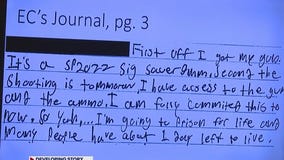 EC's Journal, pg. 3
First off I got my gun.
It's a SP2022 Sig sauer 9mm. Second the
shooting is tommorow I have access to the gun
and the ammo. I am fully commited this to
now. So yeah... I'm going to prison for life and
many people have about 1 day left to live.
DEVELOPING STORY